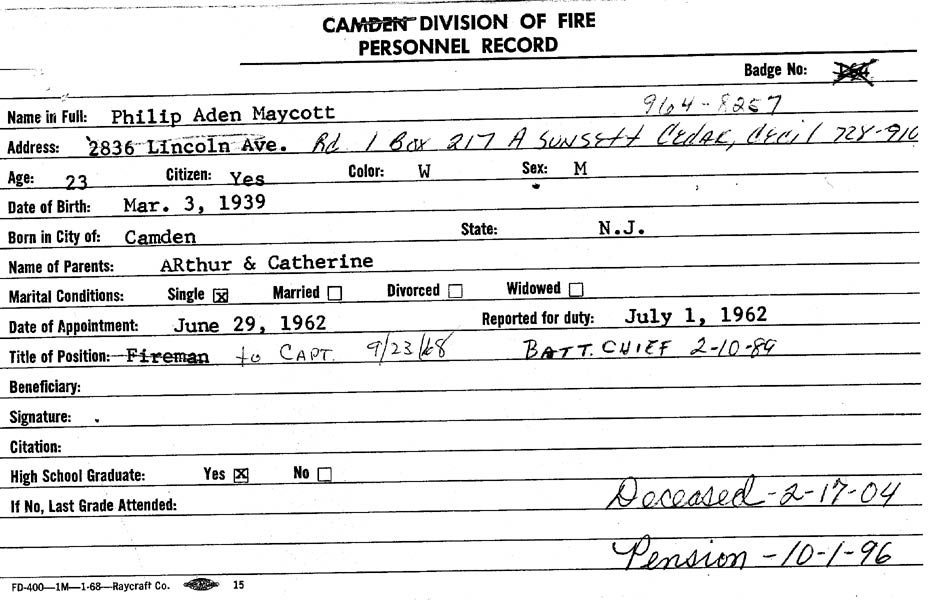 CAMDEN DIVISION OF FIRE
PERSONNEL RECORD
Badge No:
964-8257
Name in Full: Philip Aden Maycott
Address: 2836 Lincoln Ave. Rd 1 Box 217 A SUNSETT CEDAR, CECIL 728-910
Age: 23 Citizen: Yes Color: W Sex: M
Date of Birth: Mar. 3, 1939
Born in City of: Camden State: N.J.
Name of Parents: ARthur & Catherine
Marital Conditions: Single ☒ Married ☐ Divorced ☐ Widowed ☐
Date of Appointment: June 29, 1962 Reported for duty: July 1, 1962
Title of Position: Fireman to CAPT. 9/23/68 BATT. CHIEF 2-10-89
Beneficiary:
Signature:
Citation:
High School Graduate: Yes ☒ No ☐
If No, Last Grade Attended:
Deceased-2-17-04
Pension-10-1-96
FD-400—1M—1-68—Raycraft Co. 15